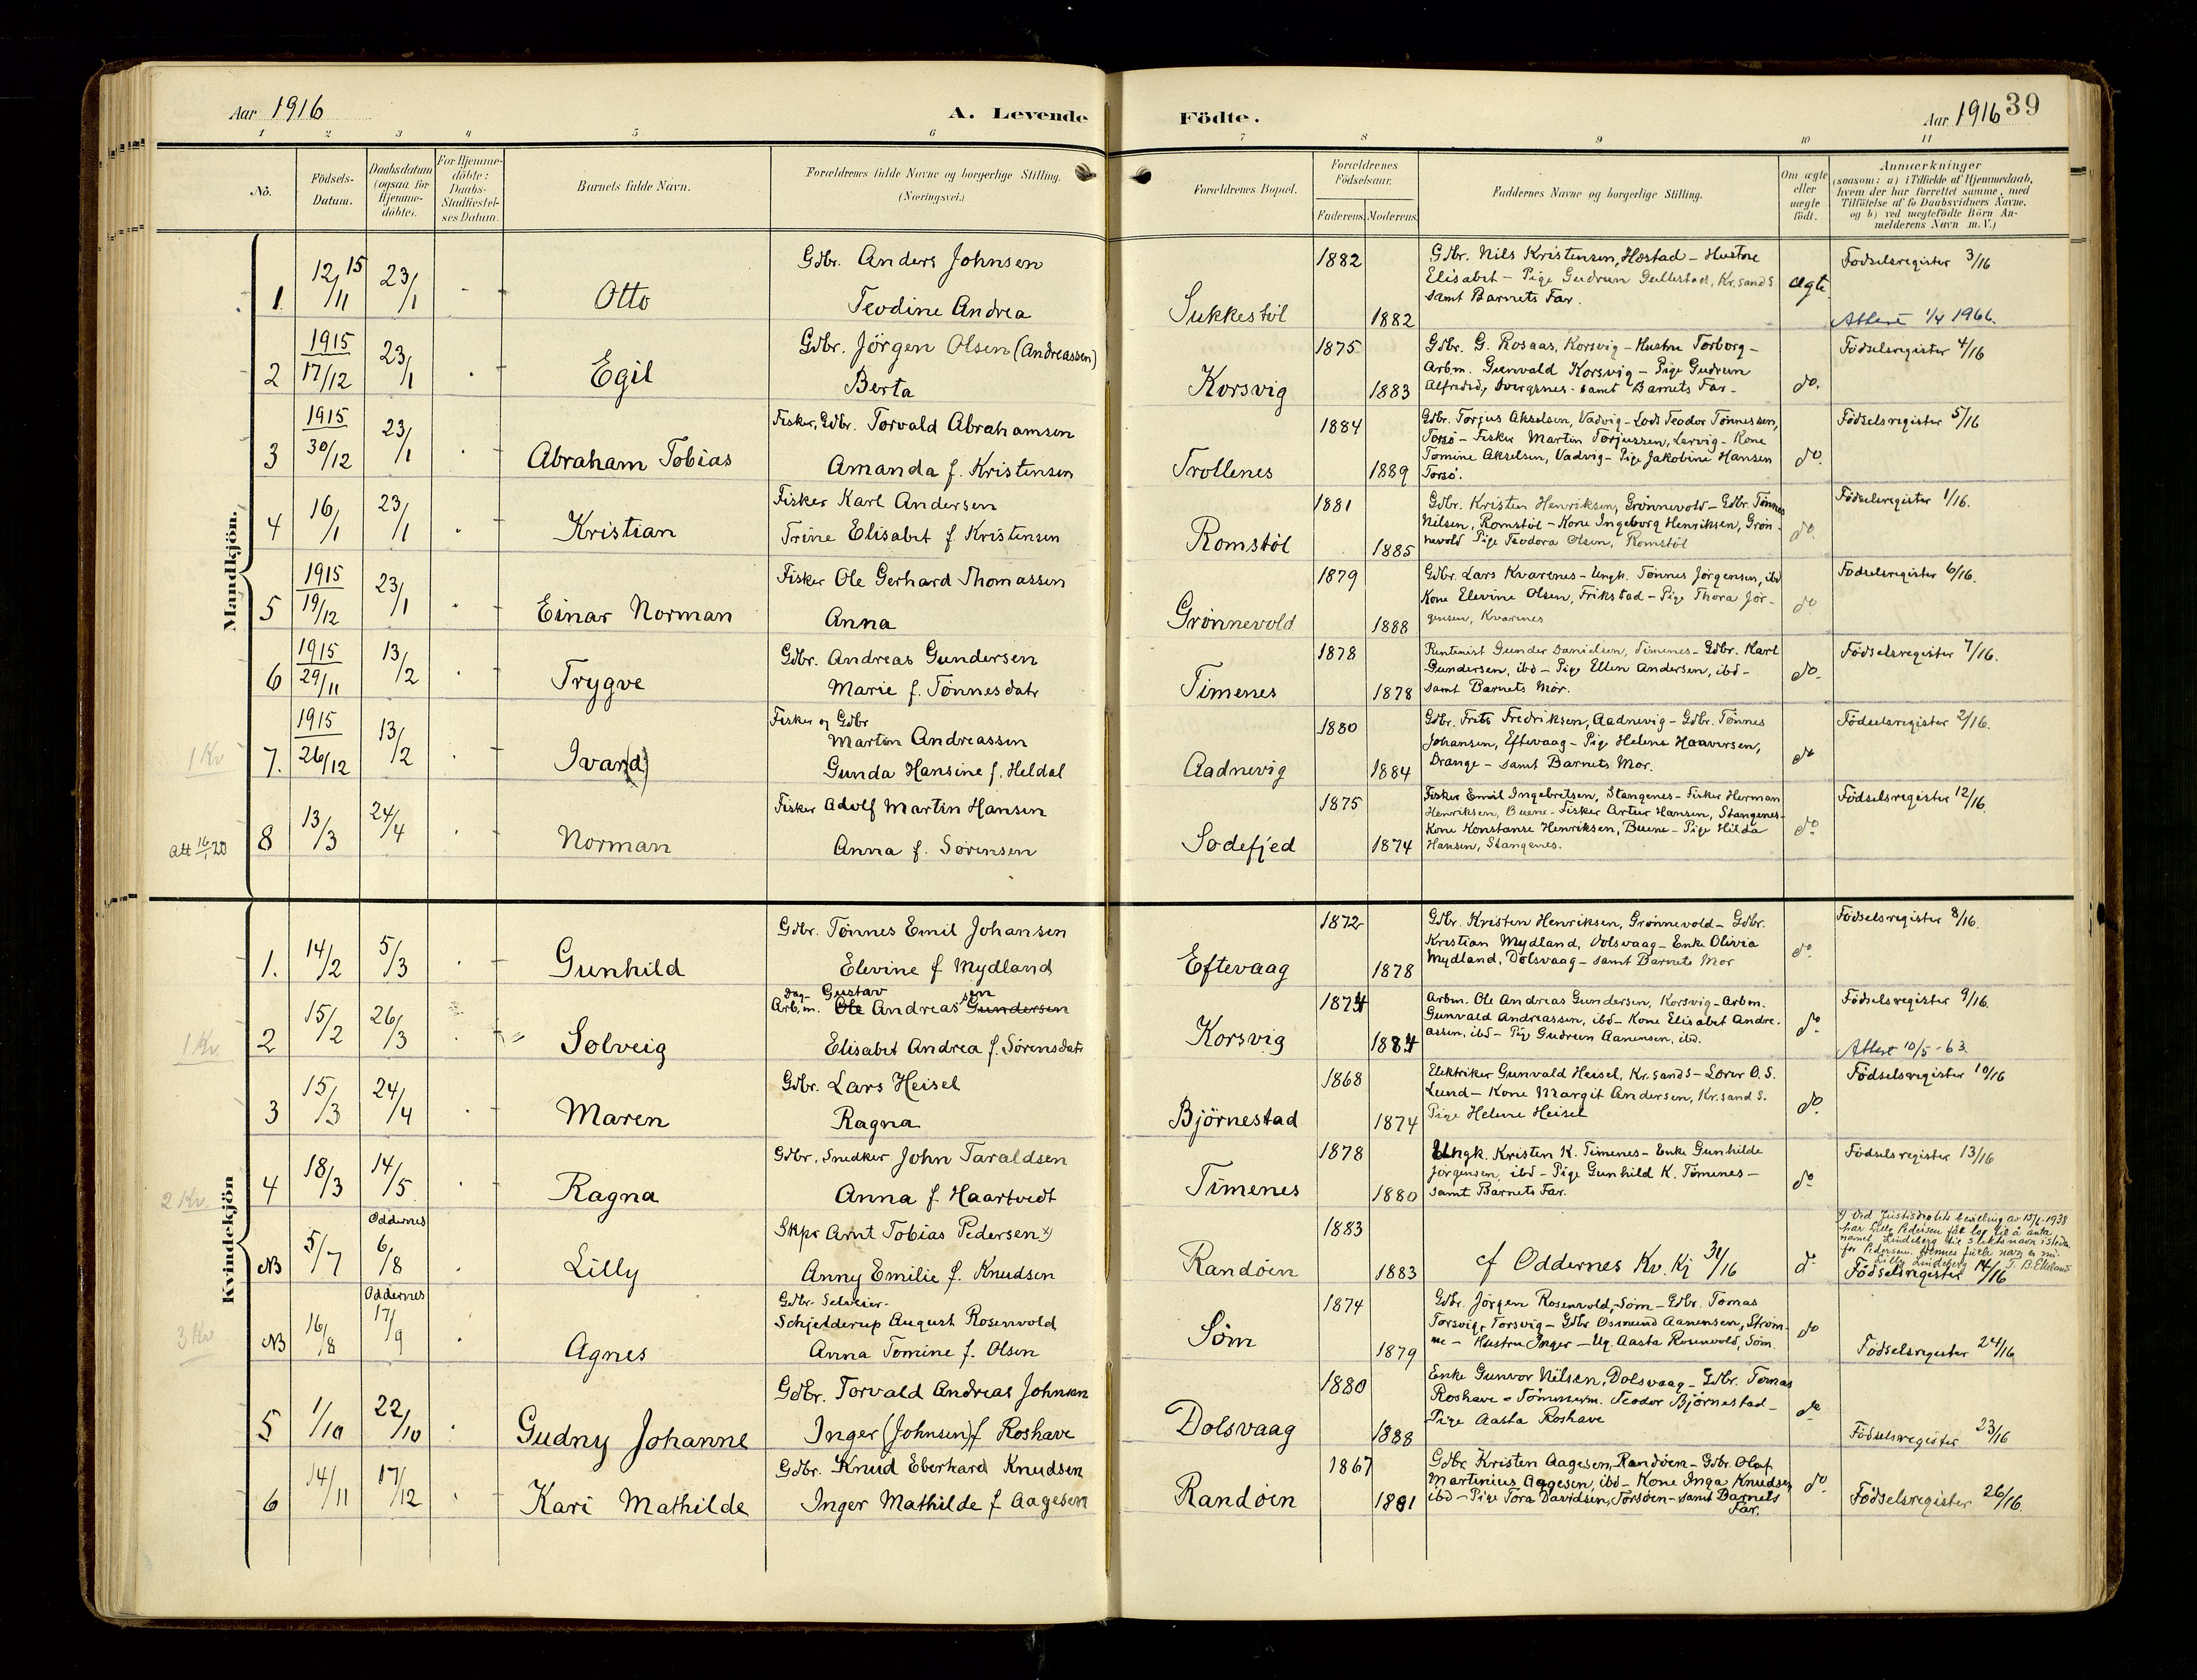 Aar 1916
A. Levende
Födte.
Aar 1916
39
1 2 3 4 5 6 7 8 9 10 11
No.
Födsels-
Datum.
Daabsdatum
(ogsaa for
Hjemme-
döbte).
For Hjemme-
döbte:
Daabs-
Stadfæstel-
ses Datum.
Barnets fulde Navn.
Forældrenes fulde Navne og borgerlige Stilling.
(Næringsvei.)
Forældrenes Bopæl.
Forældrenes
Födselsaar.
Faderens.
Moderens.
Faddernes Navne og borgerlige Stilling.
Om ægte
eller
uægte
födt.
Anmærkninger
(saasom: a) i Tilfælde af Hjemmedaab,
hvem der har forrettet samme, med
Tilföielse af to Daabsvidners Navne,
og b) ved uægtefödte Börn An-
melderens Navn m. V.)
Mandkjön.
1. 12/11 15 23/1 - Otto
Gdbr. Anders Johnsen
Teodine Andrea
Sukkestöl
1882
1882
Gdbr. Nils Kristensen, Hostad - Hustru
Elisabet - Pige Gudrun Gullestad, Kr.sand S
samt Barnets Far.
ægte
Födselsregister 3/16
Attest 1/4 1966.
2 1915 17/12 23/1 Egil
Gdbr. Jörgen Olsen (Andreassen)
Berta
Korsvig
1875
1883
Gdbr. G. Rosaas, Korsvig - Hustru Torborg -
Arbm. Gunvald Korsvig - Pige Gudrun
Alfredsd, Dvergsnes - samt Barnets Far -
do.
Födselsregister 4/16
3 1915 30/12 23/1 Abraham Tobias
Fisker, Gdbr. Torvald Abrahamsen
Amanda f. Kristensen
Trollenes
1884
1889
Gdbr. Torjus Akselsen, Vadvig - Lods Teodor Tönnessen,
Torsö - Fisker Martin Torjussen, Larvig - Kone
Tomine Akselsen, Vadvig - Pige Jakobine Hansen
Torsö.
do.
Födselsregister 5/16
4 16/1 23/1 Kristian
Fisker Karl Andersen
Trine Elisabet f. Kristensen
Romstöl
1881
1885
Gdbr. Kristen Henriksen, Grönnevold - Gdbr. Tönnes
Nilsen, Romstöl - Kone Ingeborg Henriksen, Grön-
nevold Pige Teodora Olsen, Romstöl
do.
Födselsregister 1/16.
5 1915 19/12 23/1 Einar Norman
Fisker Ole Gerhard Thomassen
Anna
Grönnevold
1879
1888
Gdbr. Lars Kvarenes - Ungk. Tönnes Jörgensen, ibd
Kone Elevine Olsen, Frikstad - Pige Thora Jör-
gensen, Kvarenes
do
Födselsregister 6/16.
6 1915 29/11 13/2 Trygve
Gdbr. Andreas Gundersen
Marie f. Tönnesdatr
Timenes
1878
1878
Rentenist Gunder Danielsen, Timenes - Gdbr. Karl
Gundersen, ibd - Pige Ellen Andersen, ibd -
samt Barnets Mor.
do.
Födselsregister 7/16.
1 Kr
7. 1915 26/12 13/2 Ivar(d)
Fisker og Gdbr
Martin Andreassen
Gunda Hansine f. Heldal
Aadnevig
1880
1884
Gdbr. Frits Fredriksen, Aadnevig - Gdbr. Tönnes
Johansen, Eftevaag - Pige Helene Haaversen,
Drange - samt Barnets Mor.
do
Födselsregister 2/16.
Att 16/1 20
8 13/3 24/4 Norman
Fisker Adolf Martin Hansen
Anna f. Sörensen
Sodefjed
1875
1874
Fisker Emil Ingebretsen, Stangenes - Fisker Herman
Henriksen, Buene - Fisker Artur Hansen, Stangenes-
Kone Konstanse Henriksen, Buene - Pige Hilda
Hansen, Stangenes.
do
Födselsregister 12/16.
Kvindekjön
1. 14/2 5/3 Gunhild
Gdbr. Tönnes Emil Johansen
Elevine f Mydland
Eftevaag
1872
1878
Gdbr. Kristen Henriksen, Grönnevold - Gdbr.
Kristian Mydland, Dolsvaag - Enke Olivia
Mydland, Dolsvaag - samt Barnets Mor
do.
Födselsregister 8/16.
1 Kr
2 15/2 26/3 Solveig
Dag- Gustav sen
Arb.m. Ole Andreas Gundersen
Elisabet Andrea f. Sörensdatr
Korsvig
1874
1884
Arbm. Ole Andreas Gundersen, Korsvig - Arbm.
Gunvald Andreassen, ibd - Kone Elisabet Andre-
assen, ibd - Pige Gudrun Aanensen, ibd.
do
Födselsregister 9/16.
Attest 10/5-63.
3 15/3 24/4 Maren
Gdbr. Lars Heisel
Ragna
Björnestad
1868
1874
Elektriker Gunvald Heisel, Kr.sand S - Lærer O. S.
Lund - Kone Margit Andersen, Kr.sand S.
Pige Helene Heisel
do.
Födselsregister 10/16
2 Kr
4 18/3 14/5 Ragna
Gdbr, Snedker John Taraldsen
Anna f. Haartvedt
Timenes
1878
1880
Ungk. Kristen K. Timenes - Enke Gunhilde
Jörgensen, ibd - Pige Gunhild K. Timenes -
samt Barnets Far.
do
Födselsregister 13/16
NB 5/7 Oddernes 6/8 Lilly
Skpr Arnt Tobias Pedersen x)
Anny Emilie f. Knudsen
Randöen
1883
1883
cf Oddernes Kv. Kj 31/16
do
x) Ved Justisdeptets bevilling av 15/6-1938
har Lilly Pedersen fåt lov til å anta
namet Lindeberg til slektsnavn isteden
for Pedersen. Hennes fulle navn er nu:
Lilly Lindeberg
Födselsregister 14/16
3 Kr
NB 16/8 Oddernes 17/9 Agnes
Gdbr.
Schjelderup August Rosenvold
Anna Tomine f. Olsen
Söm
1874
1879
Gdbr. Jörgen Rosenvold, Söm - Gdbr. Tomas
Torsvig, Torsvig - Gdbr. Osmund Aanensen, Ström-
me - Hustru Inger - Ug. Aasta Rosenvold, Söm.
do
Födselsregister 24/16
5 1/10 22/10 Gudny Johanne
Gdbr. Torvald Andreas Johnsen
Inger (Johnsen) f Roshave
Dolsvaag
1880
1888
Enke Gunvor Nilsen, Dolsvaag - Gdbr. Tomas
Roshave - Tömmerm. Teodor Björnestad -
Pige Aasta Roshave
do
Födselsregister 23/16
6 14/11 17/12 Kari Mathilde
Gdbr. Knud Eberhard Knudsen
Inger Mathilde f Aagesen
Randöen
1867
1881
Gdbr Kristen Aagesen, Randöen - Gdbr. Olaf
Martinius Aagesen, ibd - Kone Inga Knudsen
ibd - Pige Tora Davidsen, Torsöen - samt Barnets
Far.
do.
Födselsregister 26/16.